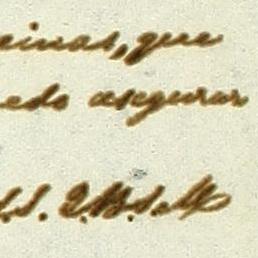 einas, que
edo asegurar
S.S. Q.B.S.M.